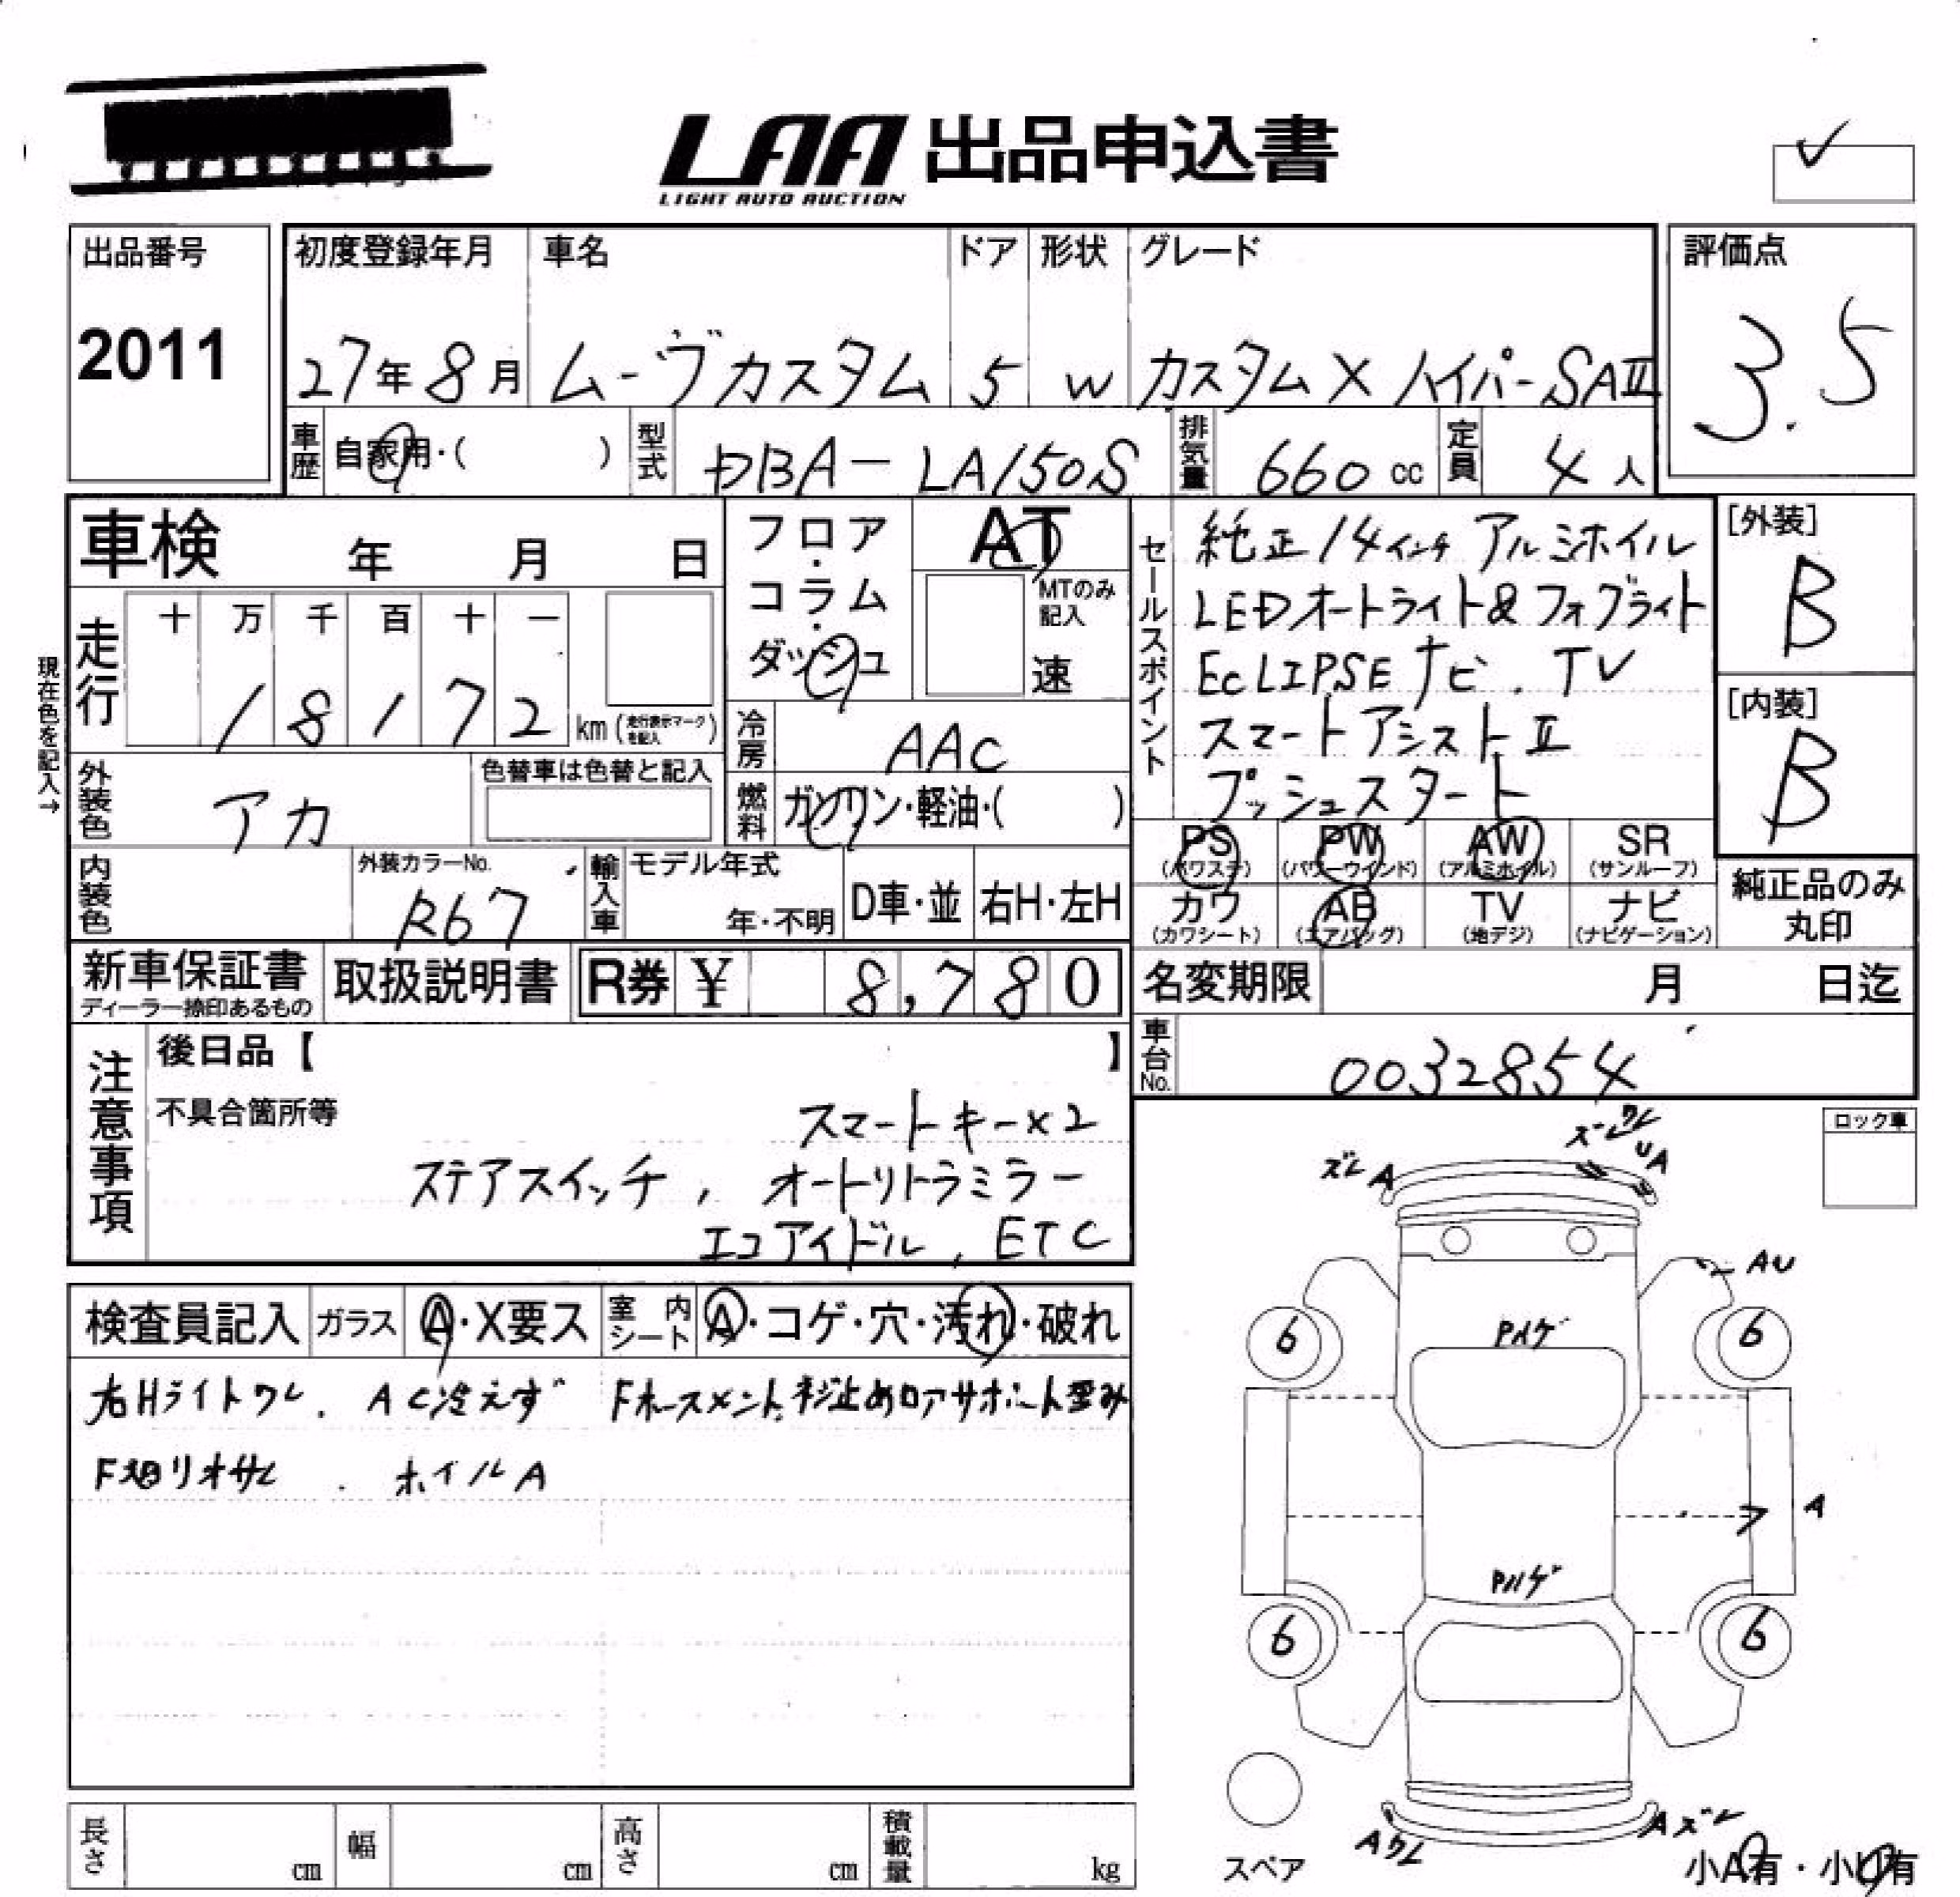 LAA 出品申込書
LIGHT AUTO AUCTION
出品番号
2011
初度登録年月 車名 ドア 形状 グレード
27年8月 ムーヴカスタム 5 W カスタムX ハイパーSAⅡ
評価点
3.5
車歴 自家用・( ) 型式 DBA-LA150S 排気量 660 cc 定員 4人
車検 年 月 日
フロア・コラム・ダッシュ
AT
MTのみ記入
速
現在色を記入→
走行 十 万 千 百 十 一
18172 km (走行表示マークを記入)
冷房 AAC
外装色 アカ 色替車は色替と記入
燃料 ガソリン・軽油・( )
内装色 外装カラーNo. R67
輸入車 モデル年式 年・不明 D車・並 右H・左H
セールスポイント
純正14インチ アルミホイル
LEDオートライト&フォグライト
ECLIPSEナビ . TV
スマートアシストⅡ
プッシュスタート
[外装]
B
[内装]
B
PS (パワステ) PW (パワーウインド) AW (アルミホイル) SR (サンルーフ)
カワ (カワシート) AB (エアバッグ) TV (地デジ) ナビ (ナビゲーション)
純正品のみ丸印
新車保証書 ディーラー捺印あるもの 取扱説明書 R券 ¥ 8,780
名変期限 月 日迄
車台No. 0032854
注意事項
後日品【 】
不具合箇所等 スマートキー×2
ステアスイッチ, オートリトラミラー
エコアイドル, ETC
検査員記入 ガラス A・X要ス 室内シート A・コゲ・穴・汚れ・破れ
右Hライトワレ. AC冷えず Fホースメント,ネジ止めロアサポート歪み
F廻リオサレ . ホイルA
ロック車
ズレ A
ズレワレ
UA
AU
6 6
Pハゲ
A
Pハゲ
6 6
スペア
Aワレ
Aズレ
小A有・小U有
長さ cm 幅 cm 高さ cm 積載量 kg